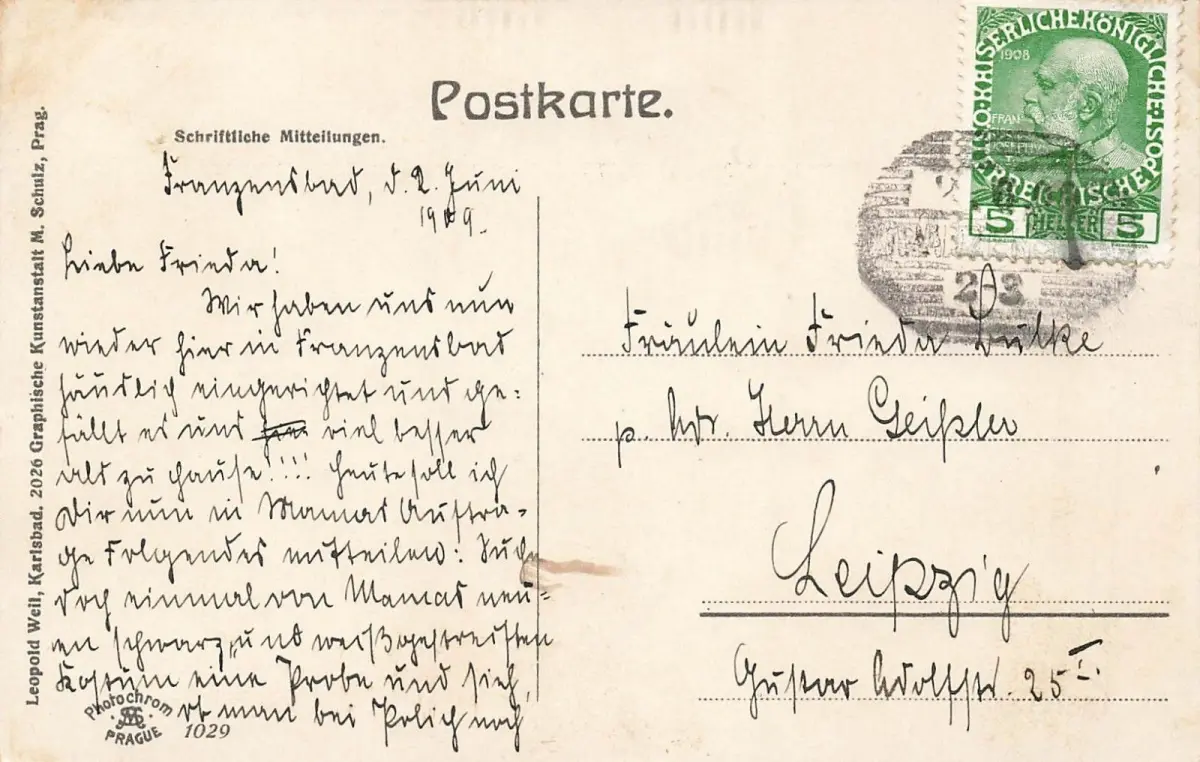 Postkarte.
Schriftliche Mitteilungen.
Franzensbad, d. 2. Juni
1909.
Liebe Frieda!
Wir haben uns nun
wieder hier in Franzensbad
häuslich eingerichtet und ge-
fällt es uns viel besser
als zu Hause!!!! Heute soll ich
Dir nun in Mamas Auftra-
ge Folgendes mitteilen: Suche
doch einmal von Mamas neu-
en schwarz und weißgestreiften
Kostüm eine Probe und sieh,
ob man bei Polich noch
Leopold Weil, Karlsbad. 2026 Graphische Kunstanstalt M. Schulz, Prag.
Photochrom
PRAGUE
1029
KAISERLICHE KÖNIGLICHE ÖSTERREICHISCHE POST
1908
FRANZ JOSEPH I
5 HELLER 5
Fräulein Frieda
p. Adr. Herrn Geißler
Leipzig
Gustav Adolfstr. 25 I.